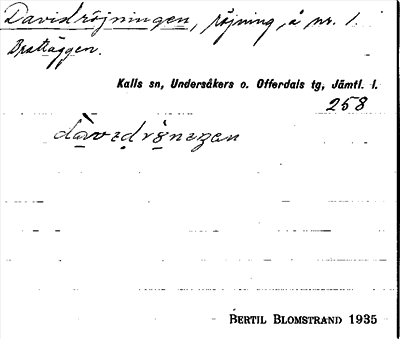 Davidröjningen, röjning, å nr. 1.
Brattäggen.
Kalls sn, Undersåkers o. Offerdals tg, Jämtl. l.
258
BERTIL BLOMSTRAND 1935